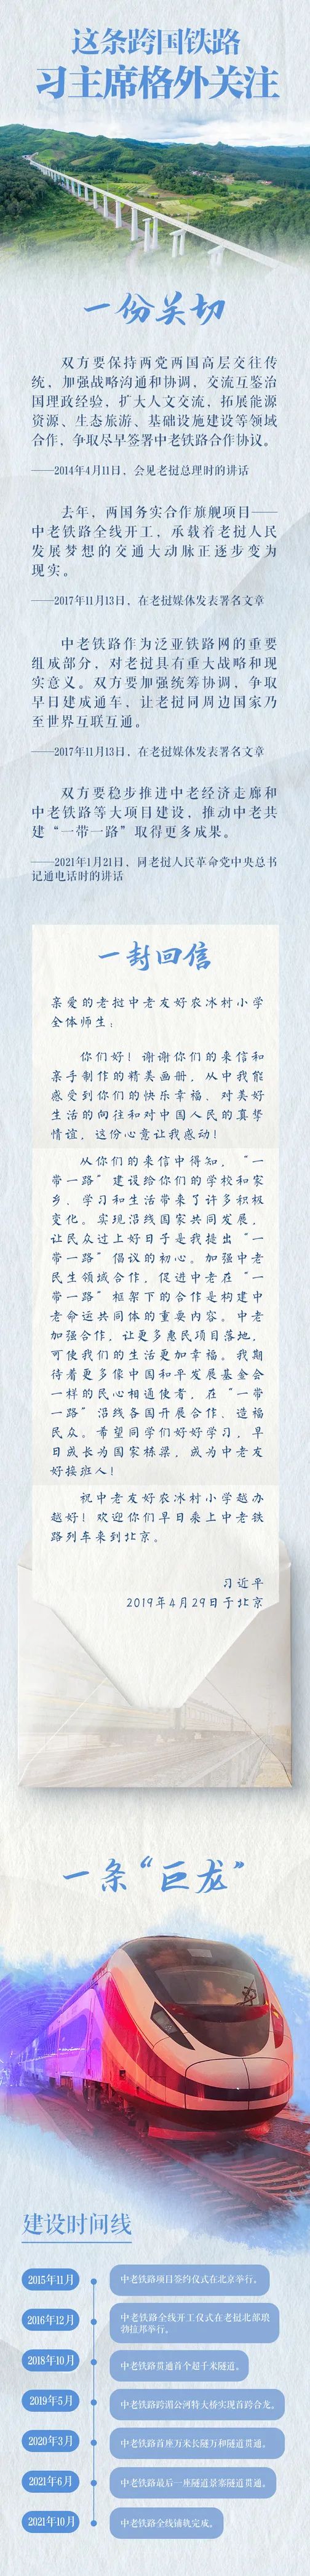 这条跨国铁路
习主席格外关注
一份关切
双方要保持两党两国高层交往传
统，加强战略沟通和协调，交流互鉴治
国理政经验，扩大人文交流，拓展能源
资源、生态旅游、基础设施建设等领域
合作，争取尽早签署中老铁路合作协议。
——2014年4月11日，会见老挝总理时的讲话
去年，两国务实合作旗舰项目——
中老铁路全线开工，承载着老挝人民
发展梦想的交通大动脉正逐步变为
现实。
——2017年11月13日，在老挝媒体发表署名文章
中老铁路作为泛亚铁路网的重要
组成部分，对老挝具有重大战略和现
实意义。双方要加强统筹协调，争取
早日建成通车，让老挝同周边国家乃
至世界互联互通。
——2017年11月13日，在老挝媒体发表署名文章
双方要稳步推进中老经济走廊和
中老铁路等大项目建设，推动中老共
建“一带一路”取得更多成果。
——2021年1月21日，同老挝人民革命党中央总书
记通电话时的讲话
一封回信
亲爱的老挝中老友好农冰村小学
全体师生：
你们好！谢谢你们的来信和
亲手制作的精美画册，从中我能
感受到你们的快乐幸福、对美好
生活的向往和对中国人民的真挚
情谊，这份心意让我感动！
从你们的来信中得知，“一
带一路”建设给你们的学校和家
乡、学习和生活带来了许多积极
变化。实现沿线国家共同发展，
让民众过上好日子是我提出“一
带一路”倡议的初心。加强中老
民生领域合作，促进中老在“一
带一路”框架下的合作是构建中
老命运共同体的重要内容。中老
加强合作，让更多惠民项目落地，
可使我们的生活更加幸福。我期
待着更多像中国和平发展基金会
一样的民心相通使者，在“一带
一路”沿线各国开展合作，造福
民众。希望同学们好好学习，早
日成长为国家栋梁，成为中老友
好接班人！
祝中老友好农冰村小学越办
越好！欢迎你们早日乘上中老铁
路列车来到北京。
习近平
2019年4月29日于北京
一条“巨龙”
建设时间线
2015年11月
中老铁路项目签约仪式在北京举行。
2016年12月
中老铁路全线开工仪式在老挝北部琅
勃拉邦举行。
2018年10月
中老铁路贯通首个超千米隧道。
2019年5月
中老铁路跨湄公河特大桥实现首跨合龙。
2020年3月
中老铁路首座万米长隧万和隧道贯通。
2021年6月
中老铁路最后一座隧道景寨隧道贯通。
2021年10月
中老铁路全线铺轨完成。